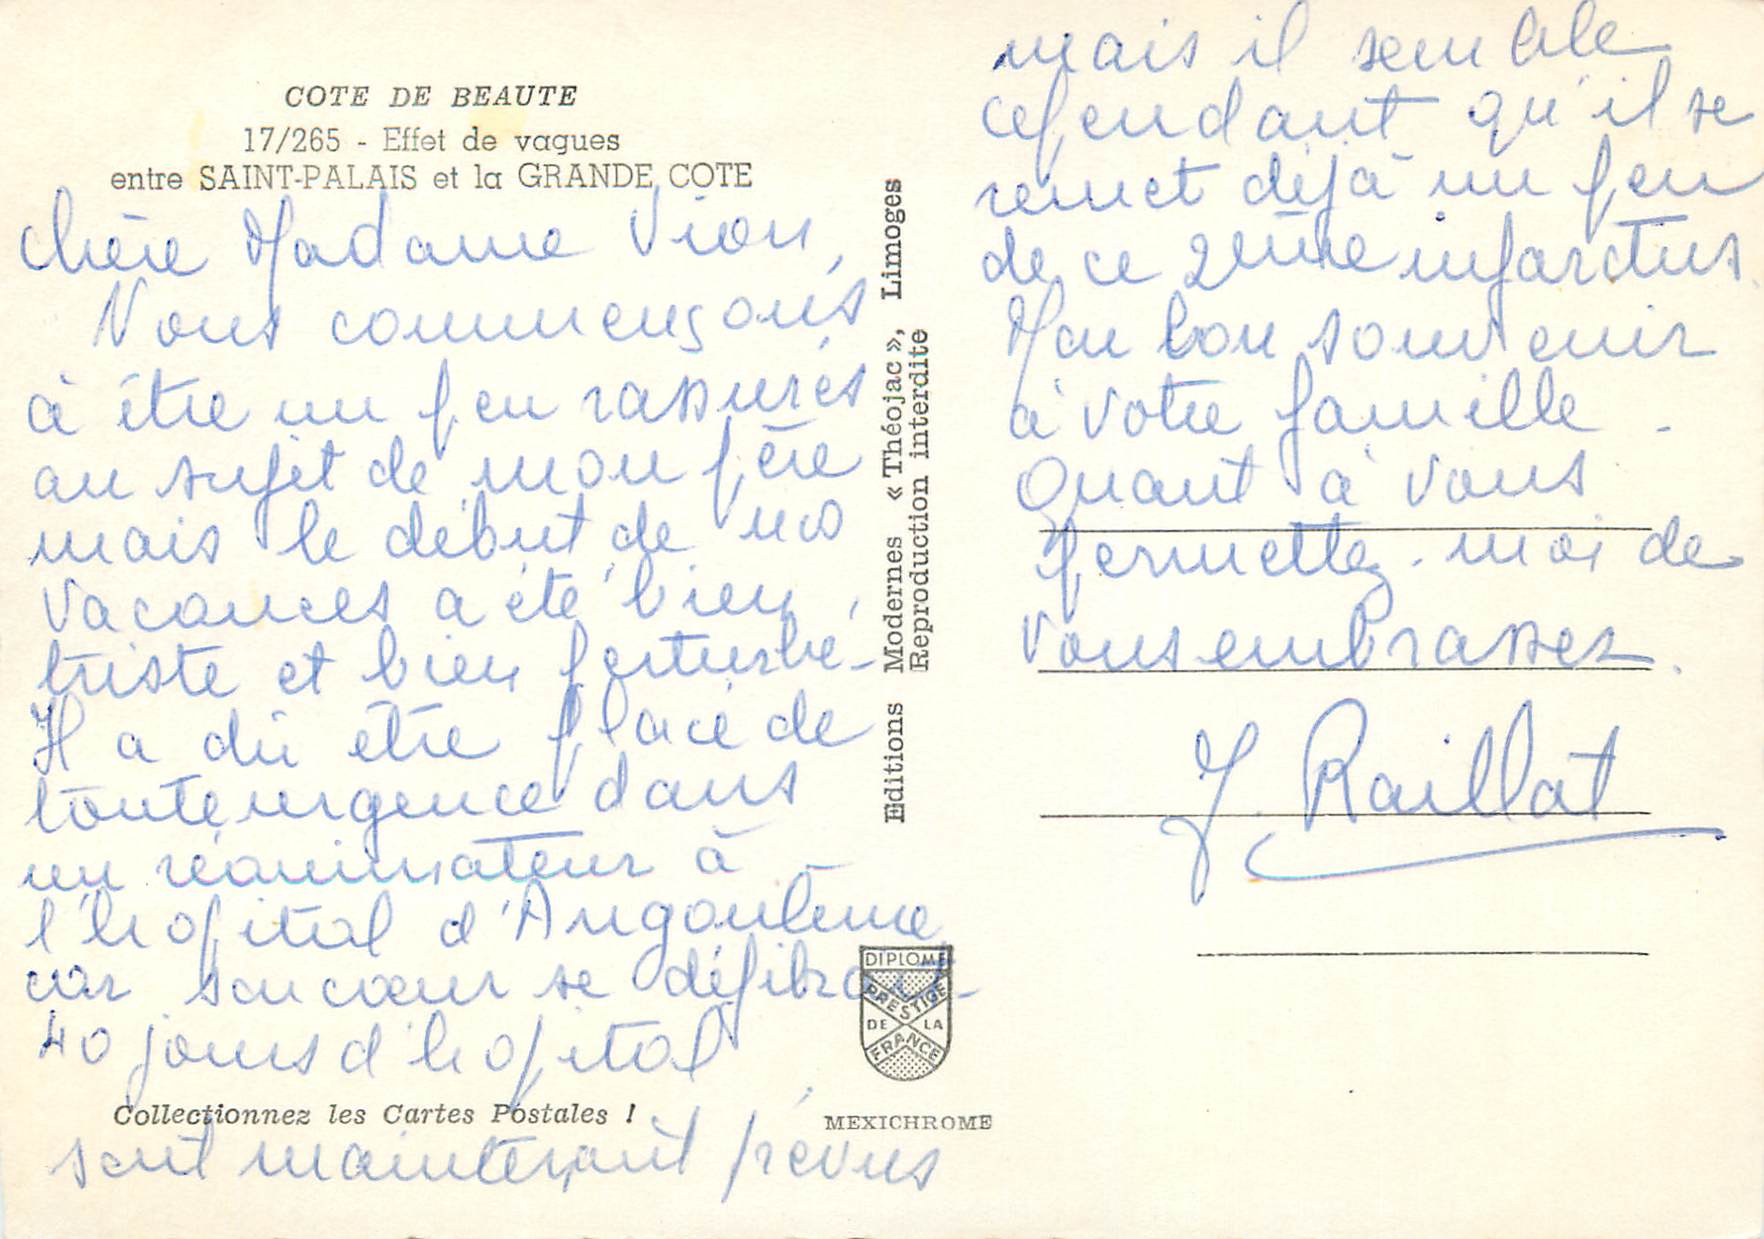 COTE DE BEAUTE
17/265 - Effet de vagues
entre SAINT-PALAIS et la GRANDE COTE
Chère Madame Vion,
Nous commençons
à être un peu rassurés
au sujet de mon père
mais le début de nos
vacances a été bien
triste et bien perturbé -
Il a dû être placé de
toute urgence dans
un réanimateur à
l'hopital d'Angoulème
car son coeur se défibrait -
40 jours d'hopital
Collectionnez les Cartes Postales !
sont maintenant prévus
Editions Modernes « Théojac », Limoges
Reproduction interdite
DIPLOME
PRESTIGE
DE LA
FRANCE
MEXICHROME
mais il semble
cependant qu'il se
remet déjà un peu
de ce 2ème infarctus.
Mon bon souvenir
à votre famille -
Quant à vous
permettez-moi de
vous embrasser.
J. Raillat